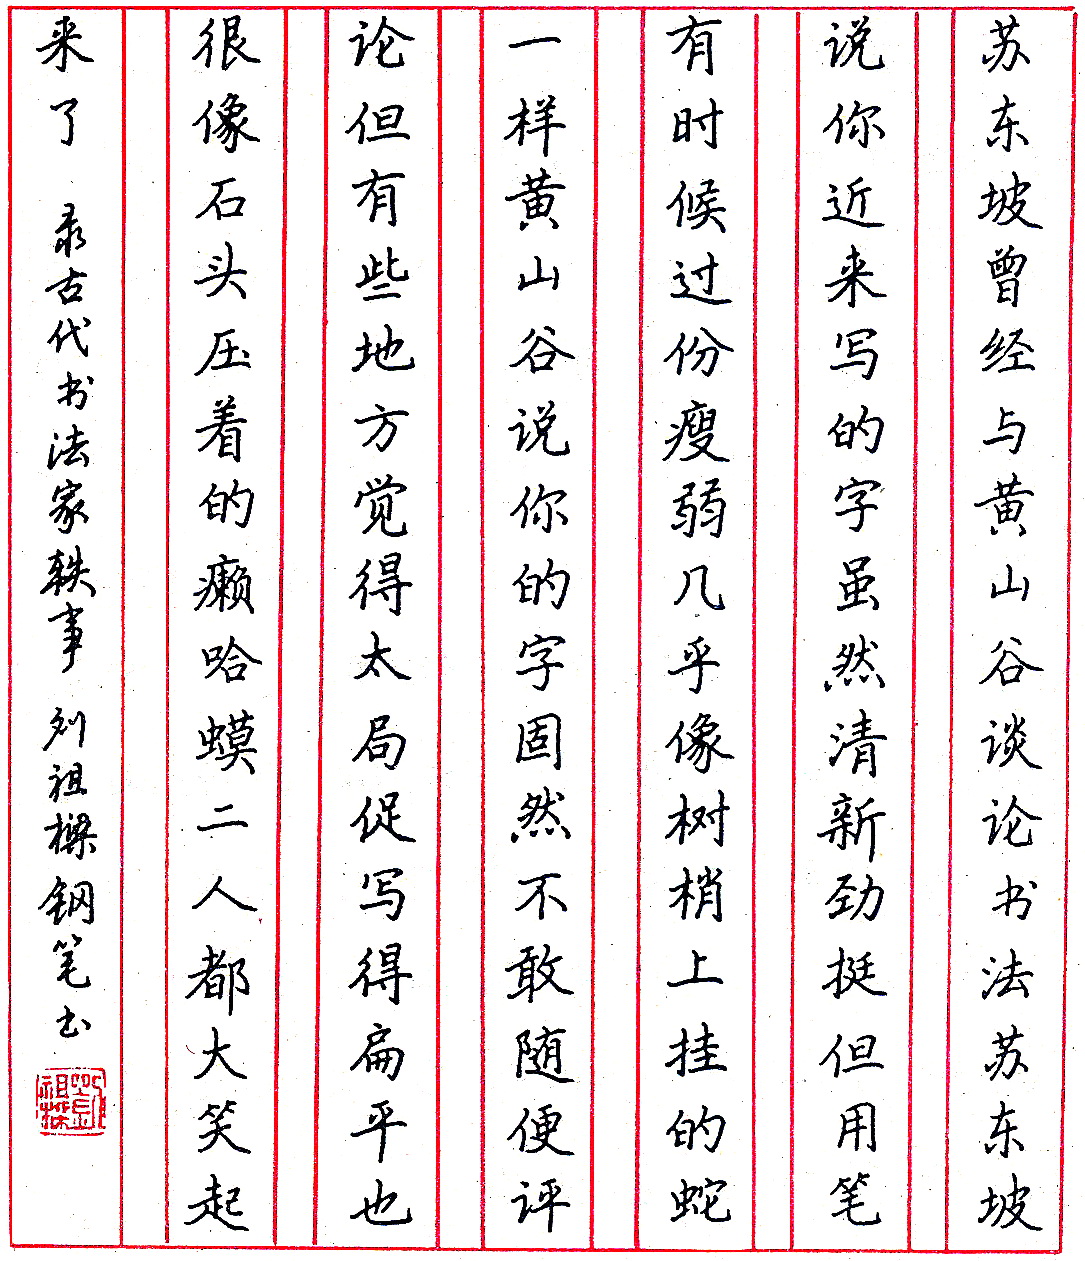 苏东坡曾经与黄山谷谈论书法苏东坡
说你近来写的字虽然清新劲挺但用笔
有时候过份瘦弱几乎像树梢上挂的蛇
一样黄山谷说你的字固然不敢随便评
论但有些地方觉得太局促写得扁平也
很像石头压着的癞哈蟆二人都大笑起
来了 录古代书法家轶事 刘祖樑钢笔书